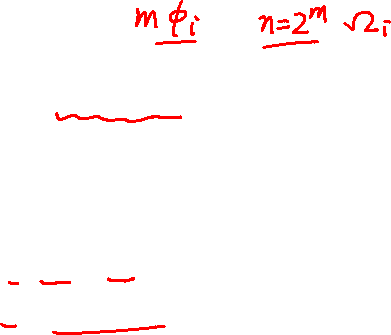 m ϕᵢ n=2ᵐ Ωᵢ